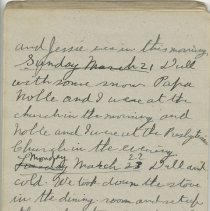 and Jessie was in this morning.
Sunday March 21 Dull
with some snow Papa
Noble and I were at the
church in the morning and
Noble and I were at the Presbyterian
Church in the evening
Monday
Sunday March 22 Dull and
cold. We took down the stove
in the dining room and set up